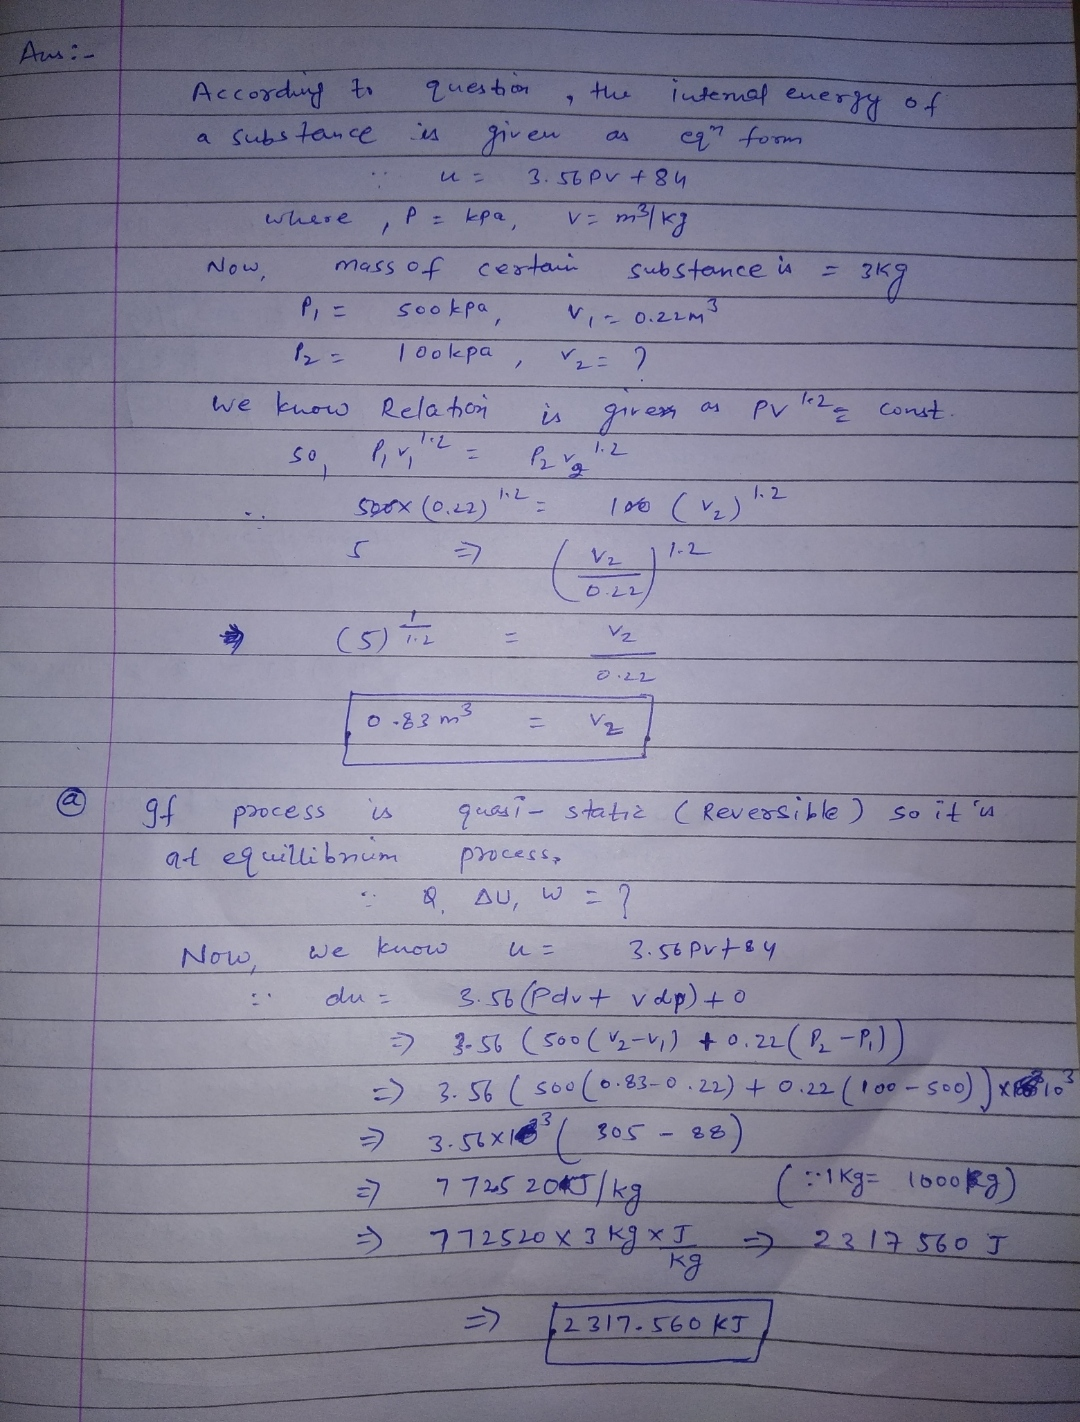 Ans:-
According to question, the internal energy of
a substance is given as eqn form
∵ u = 3.56PV + 84
where, P = kpa, V = m³/kg
Now, mass of certain substance is = 3kg
P₁ = 500kpa, V₁ = 0.22m³
P₂ = 100kpa, V₂ = ?
We know Relation is given as PV^1.2 = const.
so, P₁V₁^1.2 = P₂V₂^1.2
∴ 500 x (0.22)^1.2 = 100 (V₂)^1.2
5 ⇒ (V₂/0.22)^1.2
⇒ (5)^(1/1.2) = V₂/0.22
0.83 m³ = V₂
(a) If process is quasi-static (Reversible) so it is
at equillibrium process,
∵ Q, ΔU, W = ?
Now, we know u = 3.56PV+84
∴ du = 3.56(Pdv + vdp)+0
⇒ 3.56 (500(V₂-V₁) + 0.22(P₂-P₁))
⇒ 3.56 (500(0.83-0.22) + 0.22(100-500)) x 10³
⇒ 3.56x10³(305-88)
⇒ 772520 J/kg (∵ 1Kg = 1000kg)
⇒ 772520 x 3 kg x J/kg ⇒ 2317560 J
⇒ 2317.560 KJ